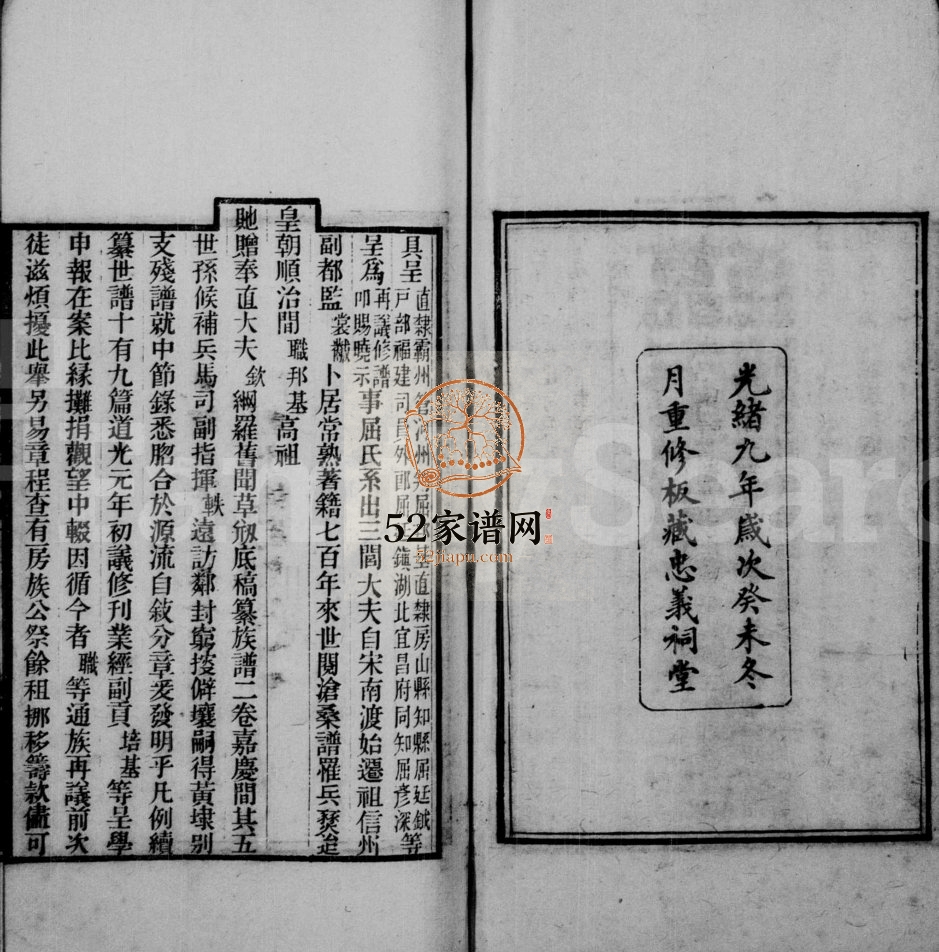 光緒九年歲次癸未冬
月重修板藏忠義祠堂
具呈直隸霸州管河州屈直隸房山縣知縣屈廷鉞
戸部福建司員外郎屈鎮湖北宜昌府同知屈彦深等
呈爲再議修譜
叩賜曉示事屈氏系出三閭大夫自宋南渡始遷祖信州
副都監裳黻卜居常熟著籍七百年來世閱滄桑譜罹兵燹迨
皇朝順治間職邦基高祖
貤贈奉直大夫欽綱羅舊聞草剏底稿纂族譜二卷嘉慶間其五
世孫候補兵馬司副指揮軼遠訪鄰封窮搜僻壤嗣得黃埭别
支殘譜就中節錄悉脗合於源流自敍分章爰發明乎凡例續
纂世譜十有九篇道光元年初議修刊業經副貢培基等呈學
申報在案比緣攤捐觀望中輟因循今者職等通族再議前次
徒滋煩擾此舉另易章程查有房族公祭餘租挪移籌款儘可
52家谱网
52jiapu.com